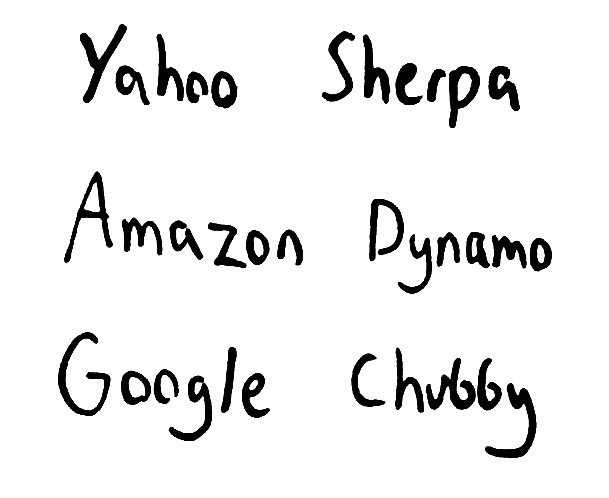 Yahoo Sherpa
Amazon Dynamo
Google Chubby